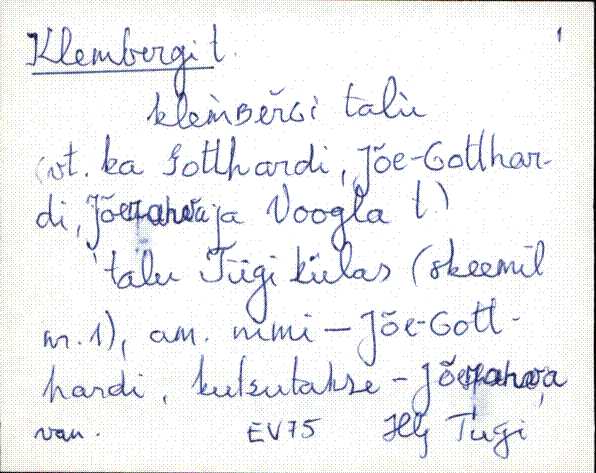 Klembergi t. 1
klèmʙěrɢi talu
(vt. ka Gotthardi, Jõe-Gotthar-
di, Jõerahva ja Voogla t.)
talu Tiigi külas (skeemil
nr. 1), am. nimi – Jõe-Gott-
hardi, kutsutakse – Jõerahva,
van. EV75 Hlj Tugi